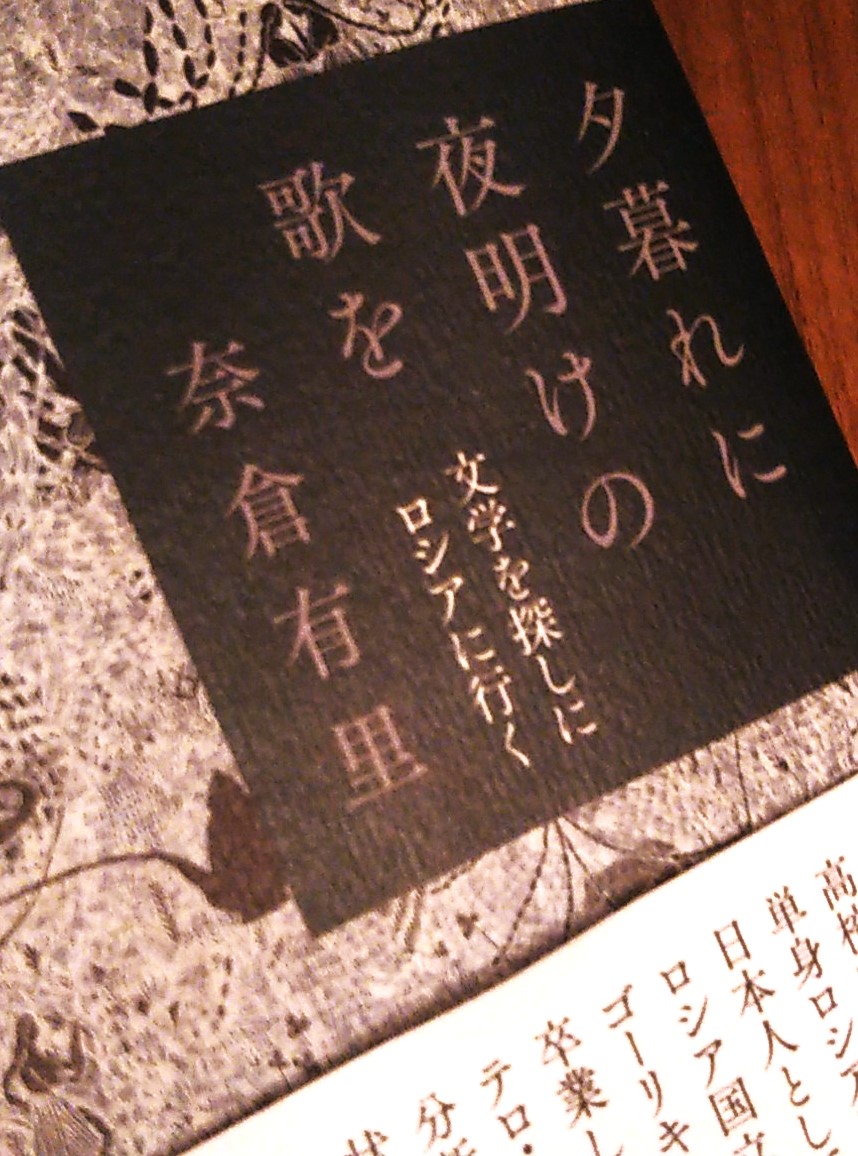 夕暮れに
夜明けの
歌を
文学を探しに
ロシアに行く
奈倉有里
高校
単身ロシア
日本人とし
ロシア国立
ゴーリキ
卒業し
テロ・
分
状